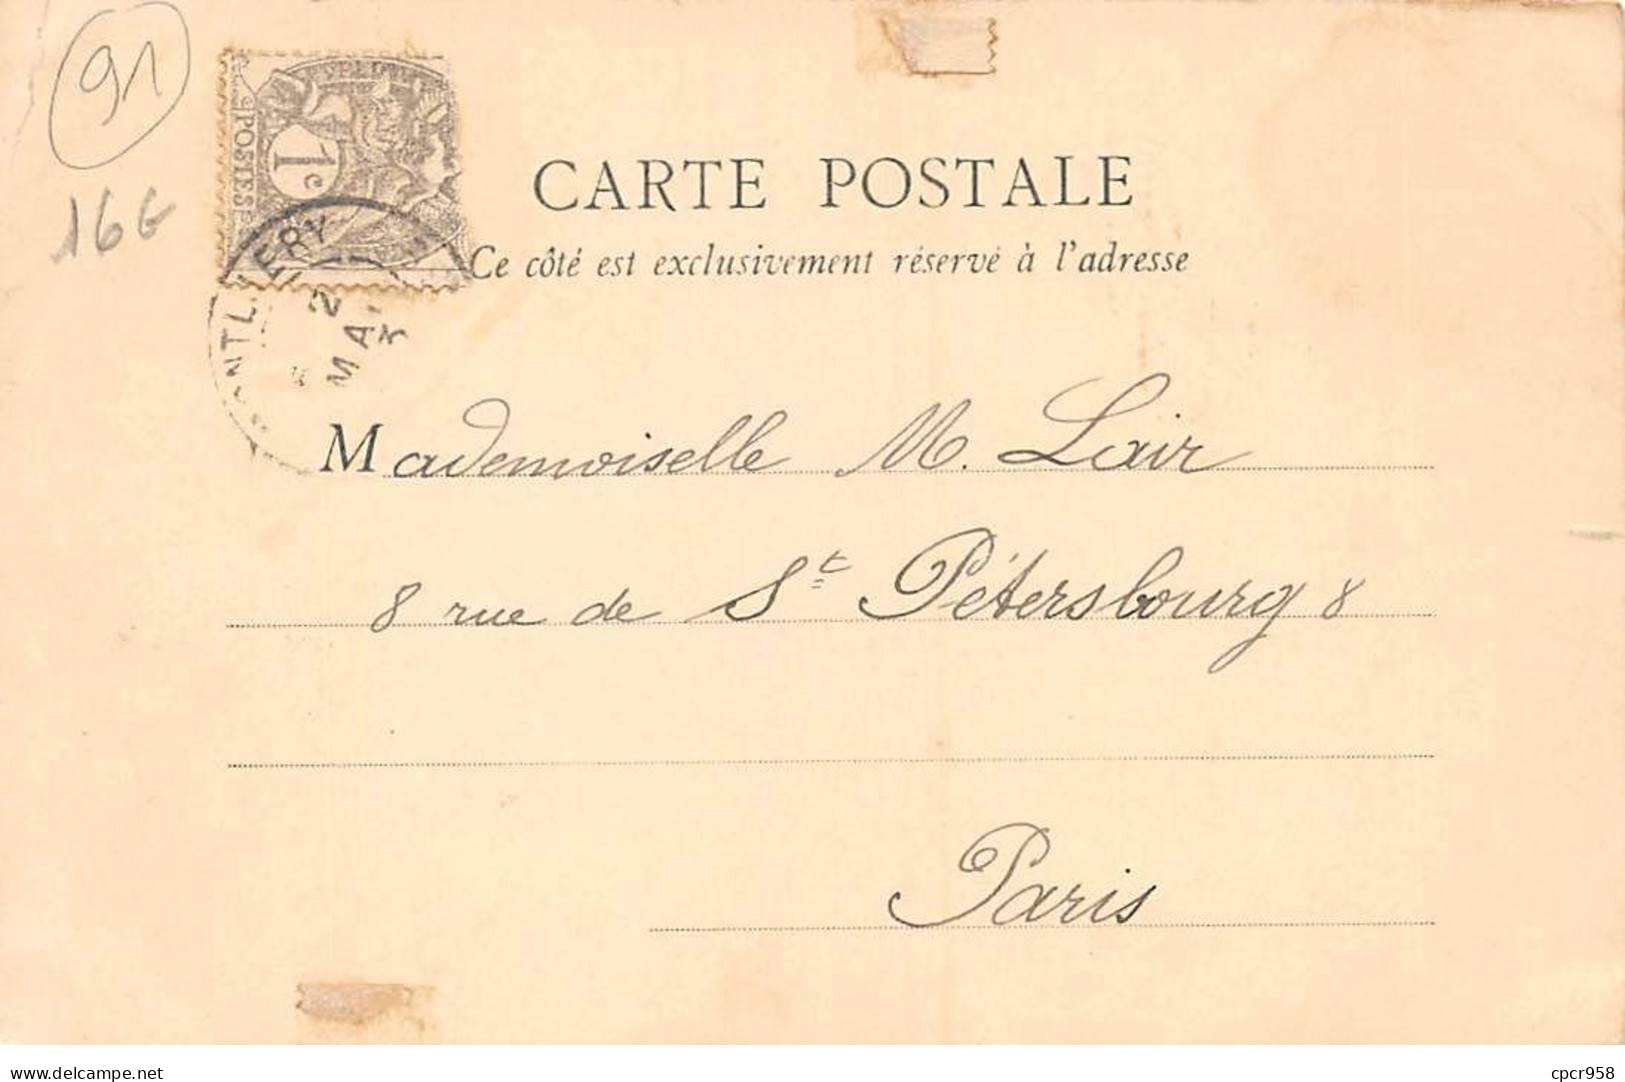 91
16€
POSTES
1c
CARTE POSTALE
Ce côté est exclusivement réservé à l'adresse
2
MA
Mademoiselle M. Lair
8 rue de St Pétersbourg 8
Paris
www.delcampe.net
cpcr958